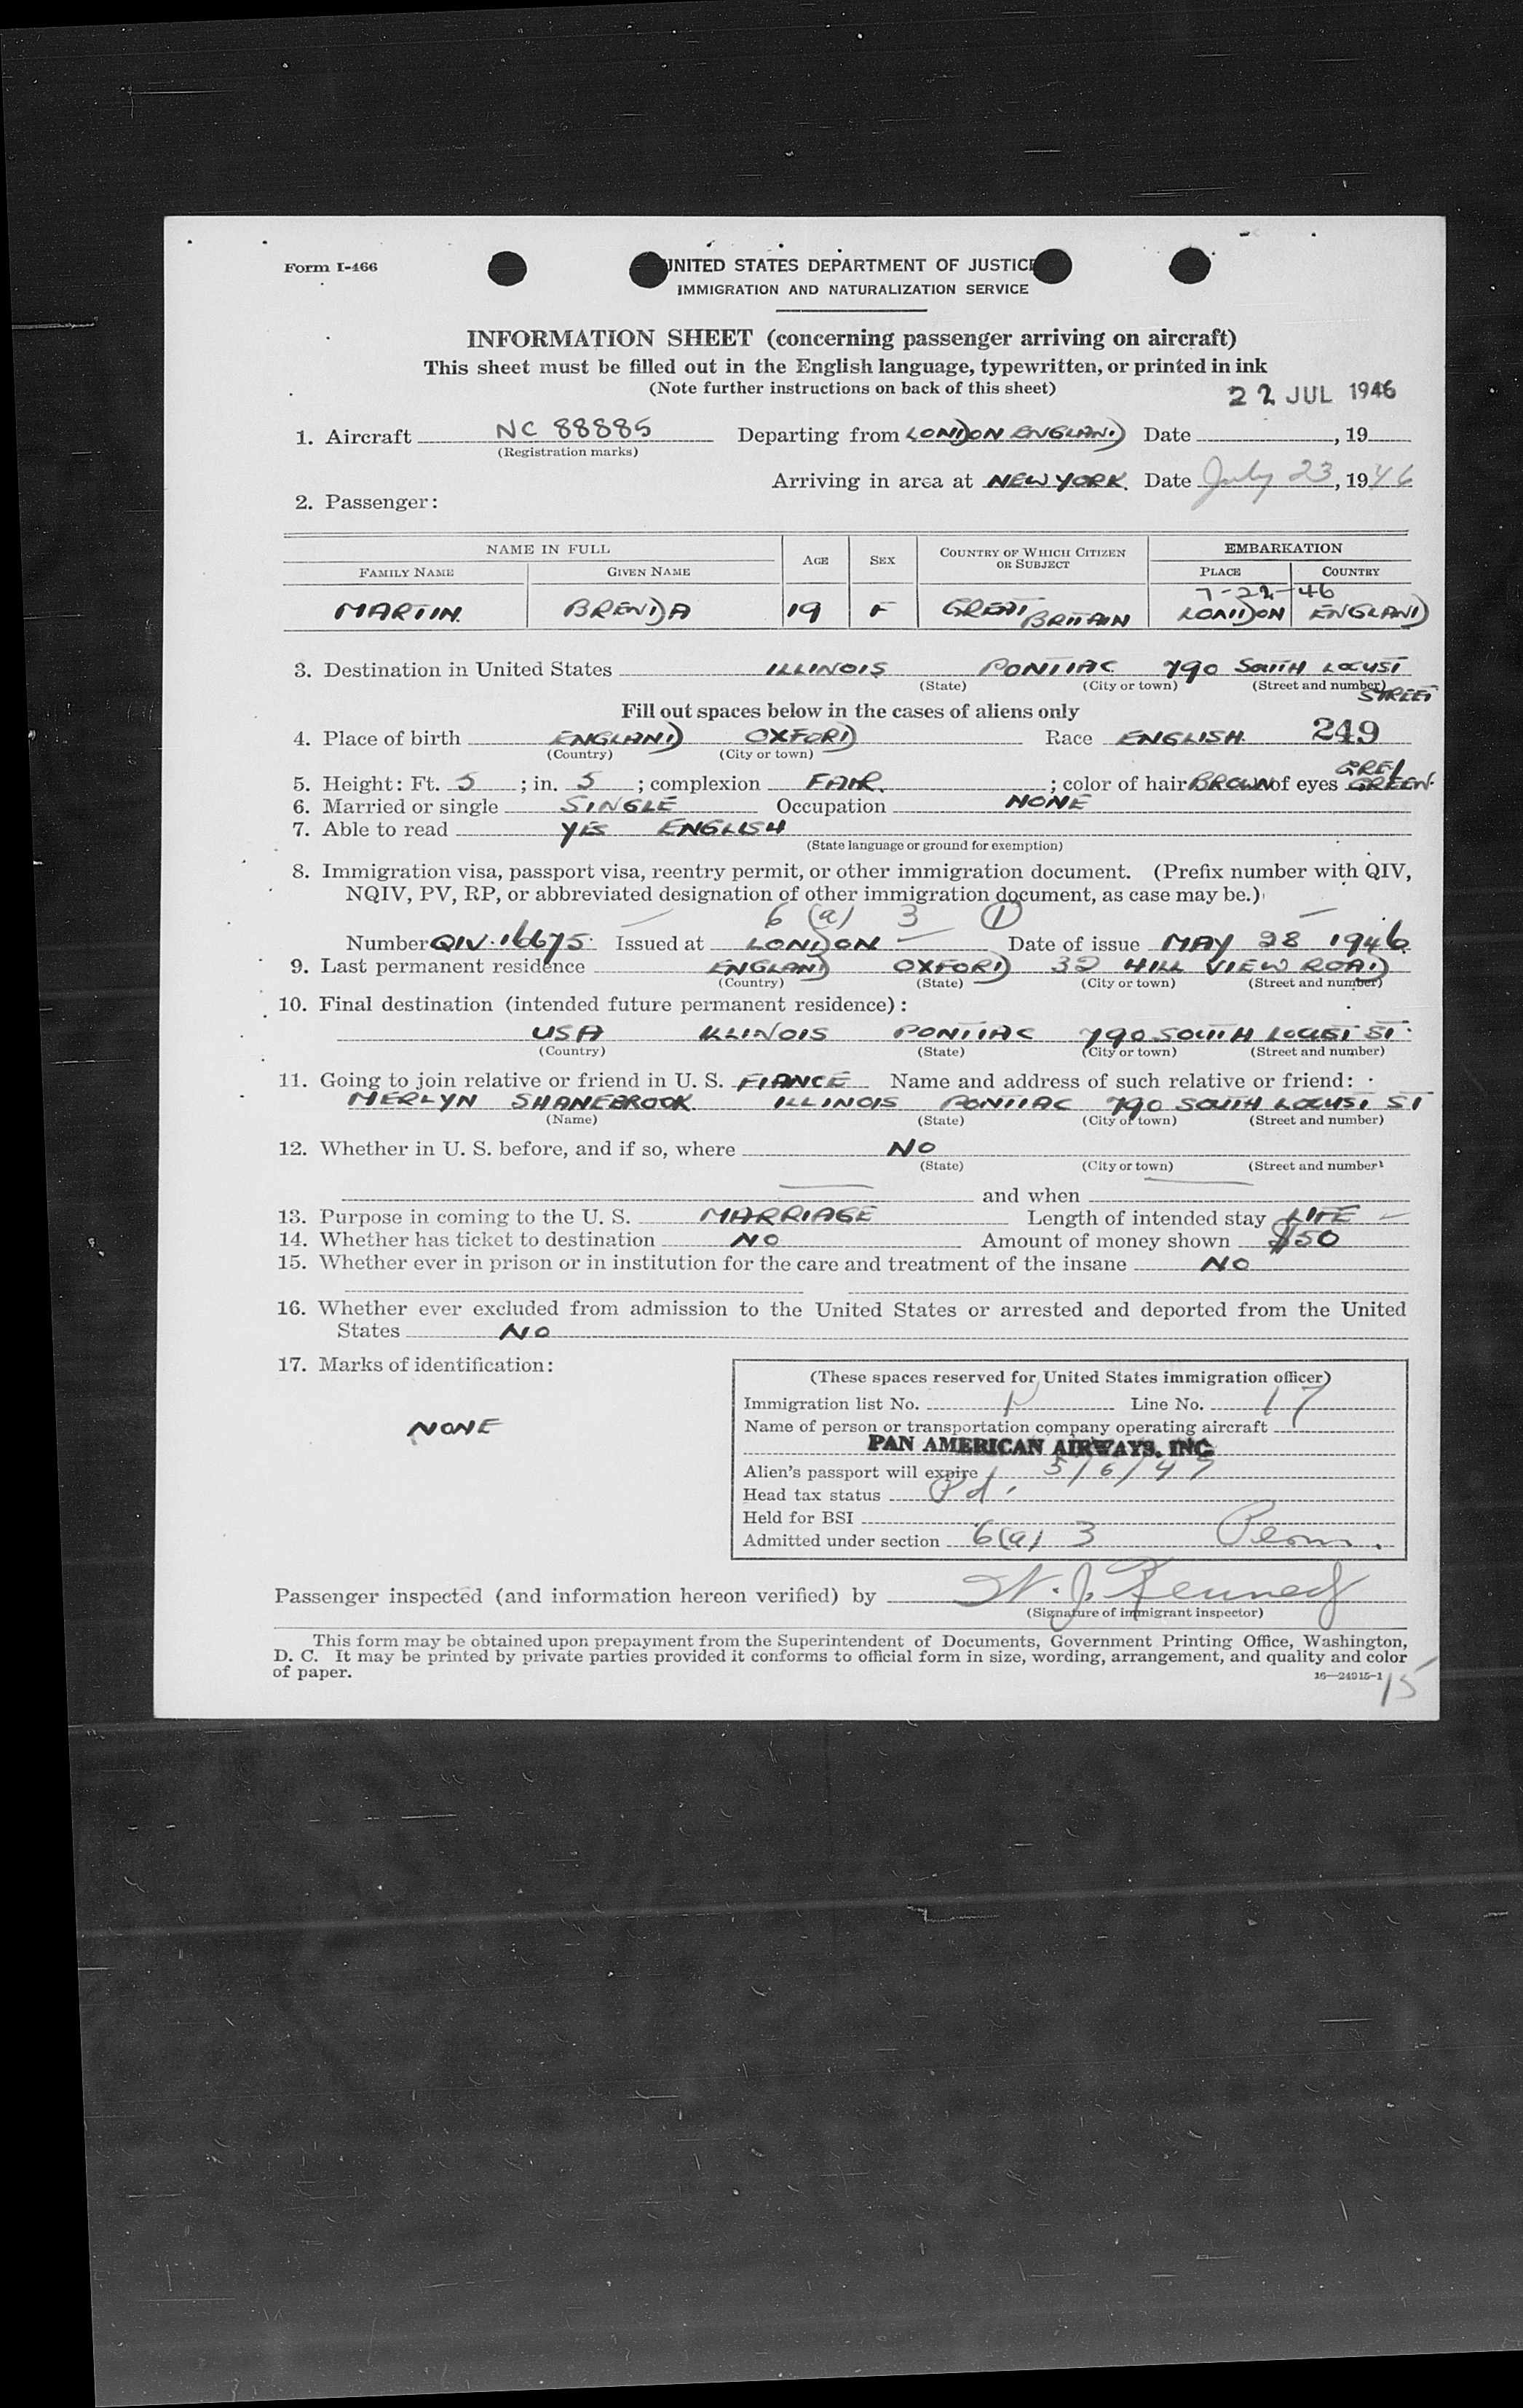 Form I-466
UNITED STATES DEPARTMENT OF JUSTICE
IMMIGRATION AND NATURALIZATION SERVICE
INFORMATION SHEET (concerning passenger arriving on aircraft)
This sheet must be filled out in the English language, typewritten, or printed in ink
(Note further instructions on back of this sheet)
22 JUL 1946
1. Aircraft NC 88885 Departing from LONDON ENGLAND Date , 19
(Registration marks)
Arriving in area at NEW YORK. Date July 23, 1946
2. Passenger:
NAME IN FULL AGE SEX COUNTRY OF WHICH CITIZEN OR SUBJECT EMBARKATION
FAMILY NAME GIVEN NAME PLACE COUNTRY
7-22-46
MARTIN. BRENDA 19 F GREAT BRITAIN LONDON ENGLAND
3. Destination in United States ILLINOIS PONTIAC 790 SOUTH LOCUST
(State) (City or town) (Street and number) STREET
Fill out spaces below in the cases of aliens only
4. Place of birth ENGLAND OXFORD Race ENGLISH. 249
(Country) (City or town)
5. Height: Ft. 5; in. 5; complexion FAIR.; color of hair BROWN of eyes GREY GREEN.
6. Married or single SINGLE Occupation NONE
7. Able to read YES ENGLISH
(State language or ground for exemption)
8. Immigration visa, passport visa, reentry permit, or other immigration document. (Prefix number with QIV,
NQIV, PV, RP, or abbreviated designation of other immigration document, as case may be.)
6 (a) 3 1
Number QIV.16675. Issued at LONDON Date of issue MAY 28 1946
9. Last permanent residence ENGLAND OXFORD 32 HILL VIEW ROAD
(Country) (State) (City or town) (Street and number)
10. Final destination (intended future permanent residence):
USA ILLINOIS PONTIAC 790 SOUTH LOCUST ST.
(Country) (State) (City or town) (Street and number)
11. Going to join relative or friend in U. S. FIANCE Name and address of such relative or friend:
MERLYN SHANEBROOK ILLINOIS PONTIAC 790 SOUTH LOCUST ST
(Name) (State) (City or town) (Street and number)
12. Whether in U. S. before, and if so, where NO
(State) (City or town) (Street and number)
and when
13. Purpose in coming to the U. S. MARRIAGE Length of intended stay LIFE
14. Whether has ticket to destination NO Amount of money shown $50
15. Whether ever in prison or in institution for the care and treatment of the insane NO
16. Whether ever excluded from admission to the United States or arrested and deported from the United
States NO
17. Marks of identification:
NONE
(These spaces reserved for United States immigration officer)
Immigration list No. Line No. 17
Name of person or transportation company operating aircraft
PAN AMERICAN AIRWAYS, INC
Alien's passport will expire 5/6/47
Head tax status Pd.
Held for BSI
Admitted under section 6(a) 3 Perm.
Passenger inspected (and information hereon verified) by W. J. Kennedy
(Signature of immigrant inspector)
This form may be obtained upon prepayment from the Superintendent of Documents, Government Printing Office, Washington,
D. C. It may be printed by private parties provided it conforms to official form in size, wording, arrangement, and quality and color
of paper.
16—24915-1
15